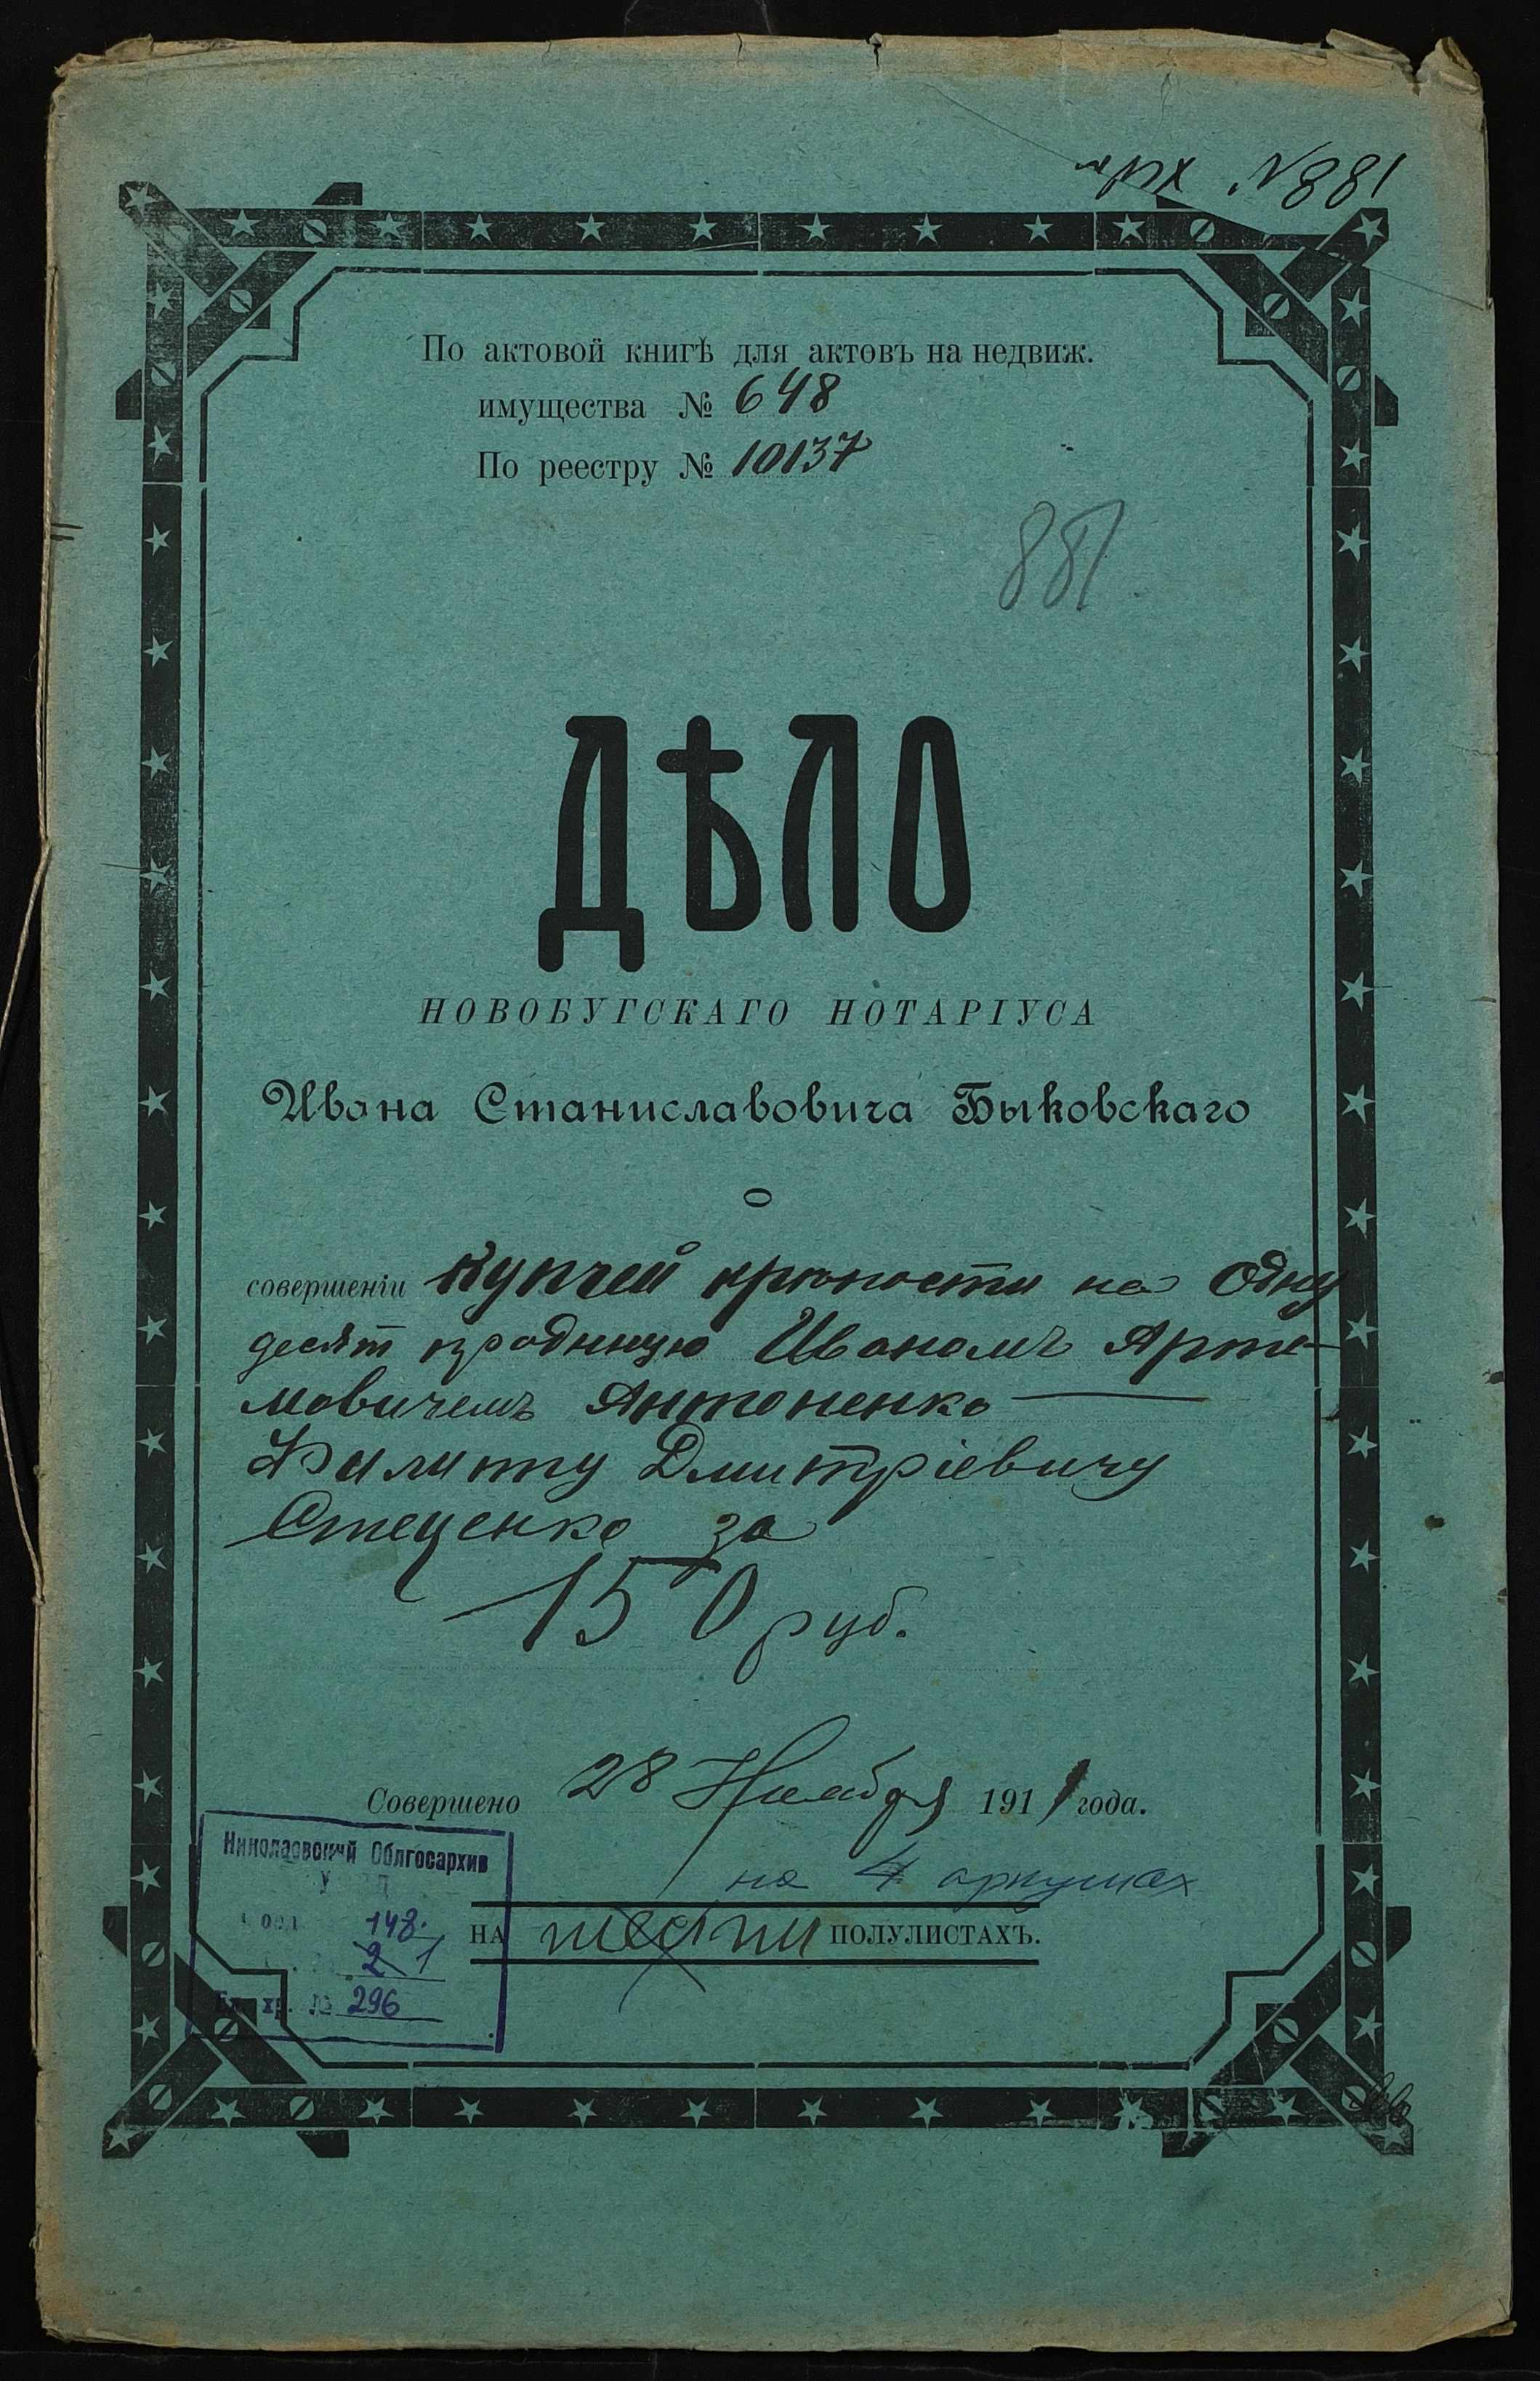 арх №881
По актовой книгѣ для актовъ на недвиж.
имущества № 648
По реестру № 10137
881
ДѢЛО
НОВОБУГСКАГО НОТАРІУСА
Ивана Станиславовича Быковскаго
О
совершеніи Купчей крѣпости на одну
десят проданную Иваномъ Арте-
мовичемъ Антоненко
Филиппу Дмитріевичу
Стеценко за
150 руб.
Совершено 28 Ноября 1911 года.
на 4 аркушах
НА шести ПОЛУЛИСТАХЪ.
Николаевский Облгосархив
148.
2 1
Ед. хр. № 296